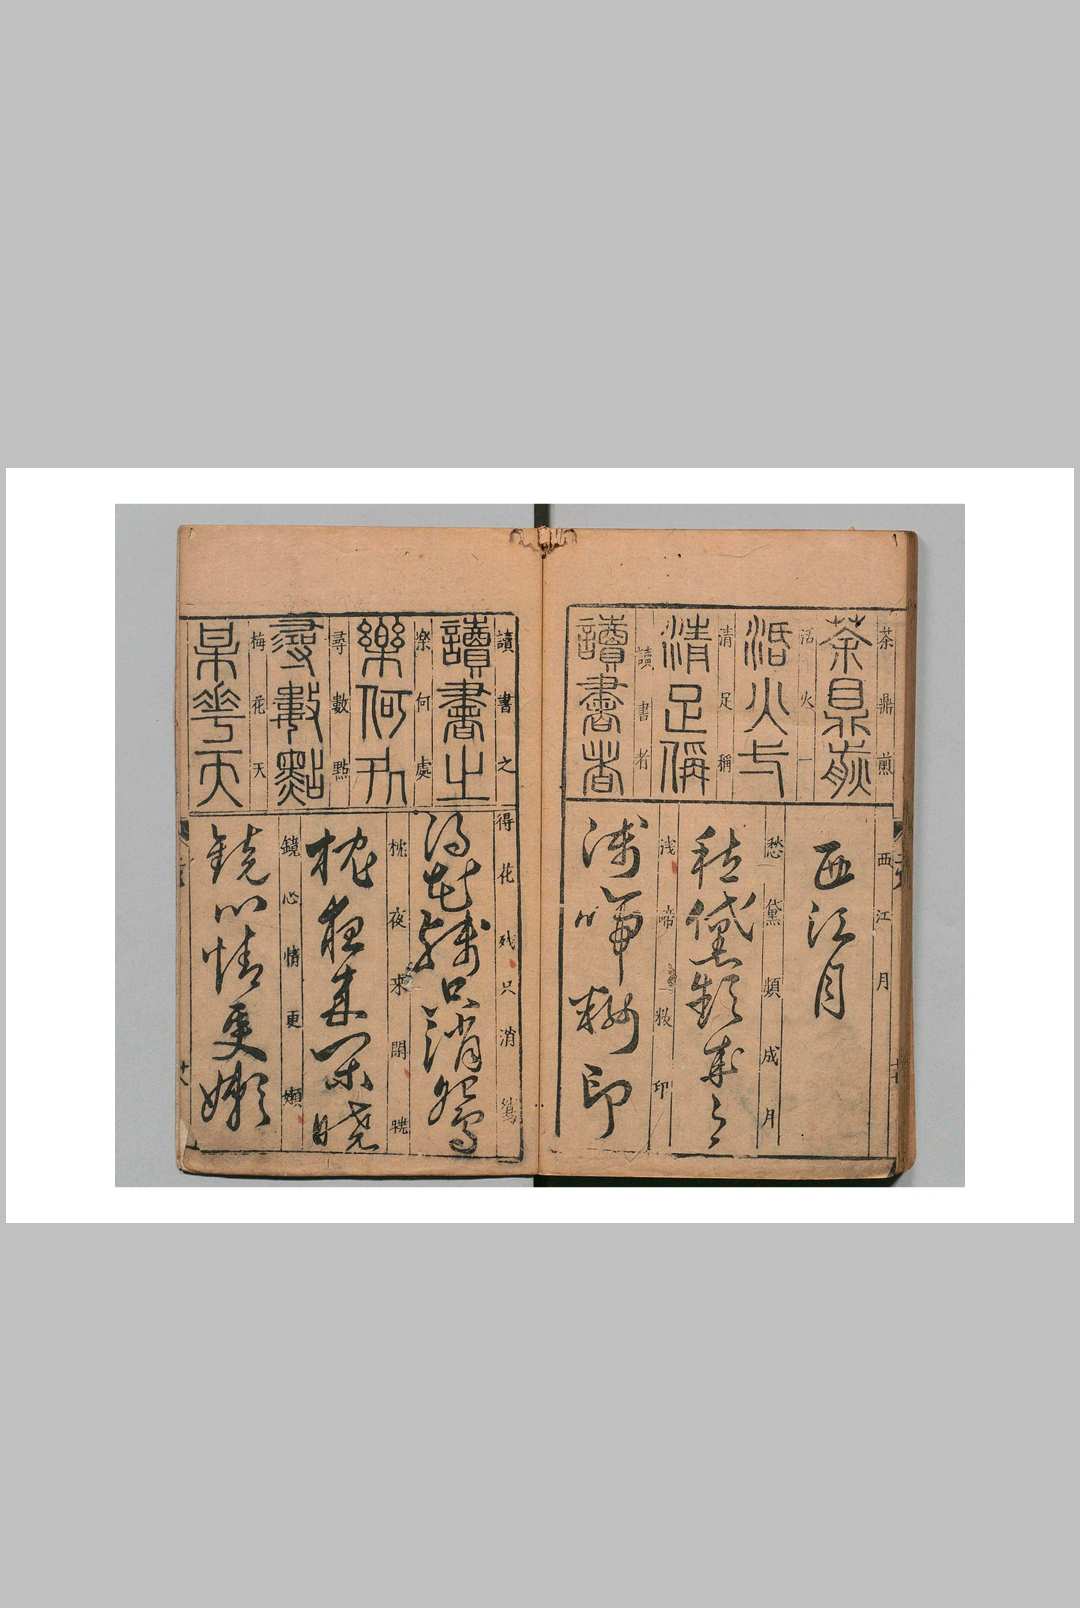 茶鼎煎
茶鼎煎
活火一
活火一
清足稱
清足稱
讀書者
讀書者
西江月
西江月
愁黛頻成月
愁黛顰成月
浅啼粧印
淺啼粧印
讀書之
讀書之
樂何處
樂何処
尋數點
尋數點
梅花天
某華天
得花残只消鴛
得花殘只消鴛
枕夜来閒曉
枕夜来閒曉
鏡心情更嬾
鏡心情更嬾